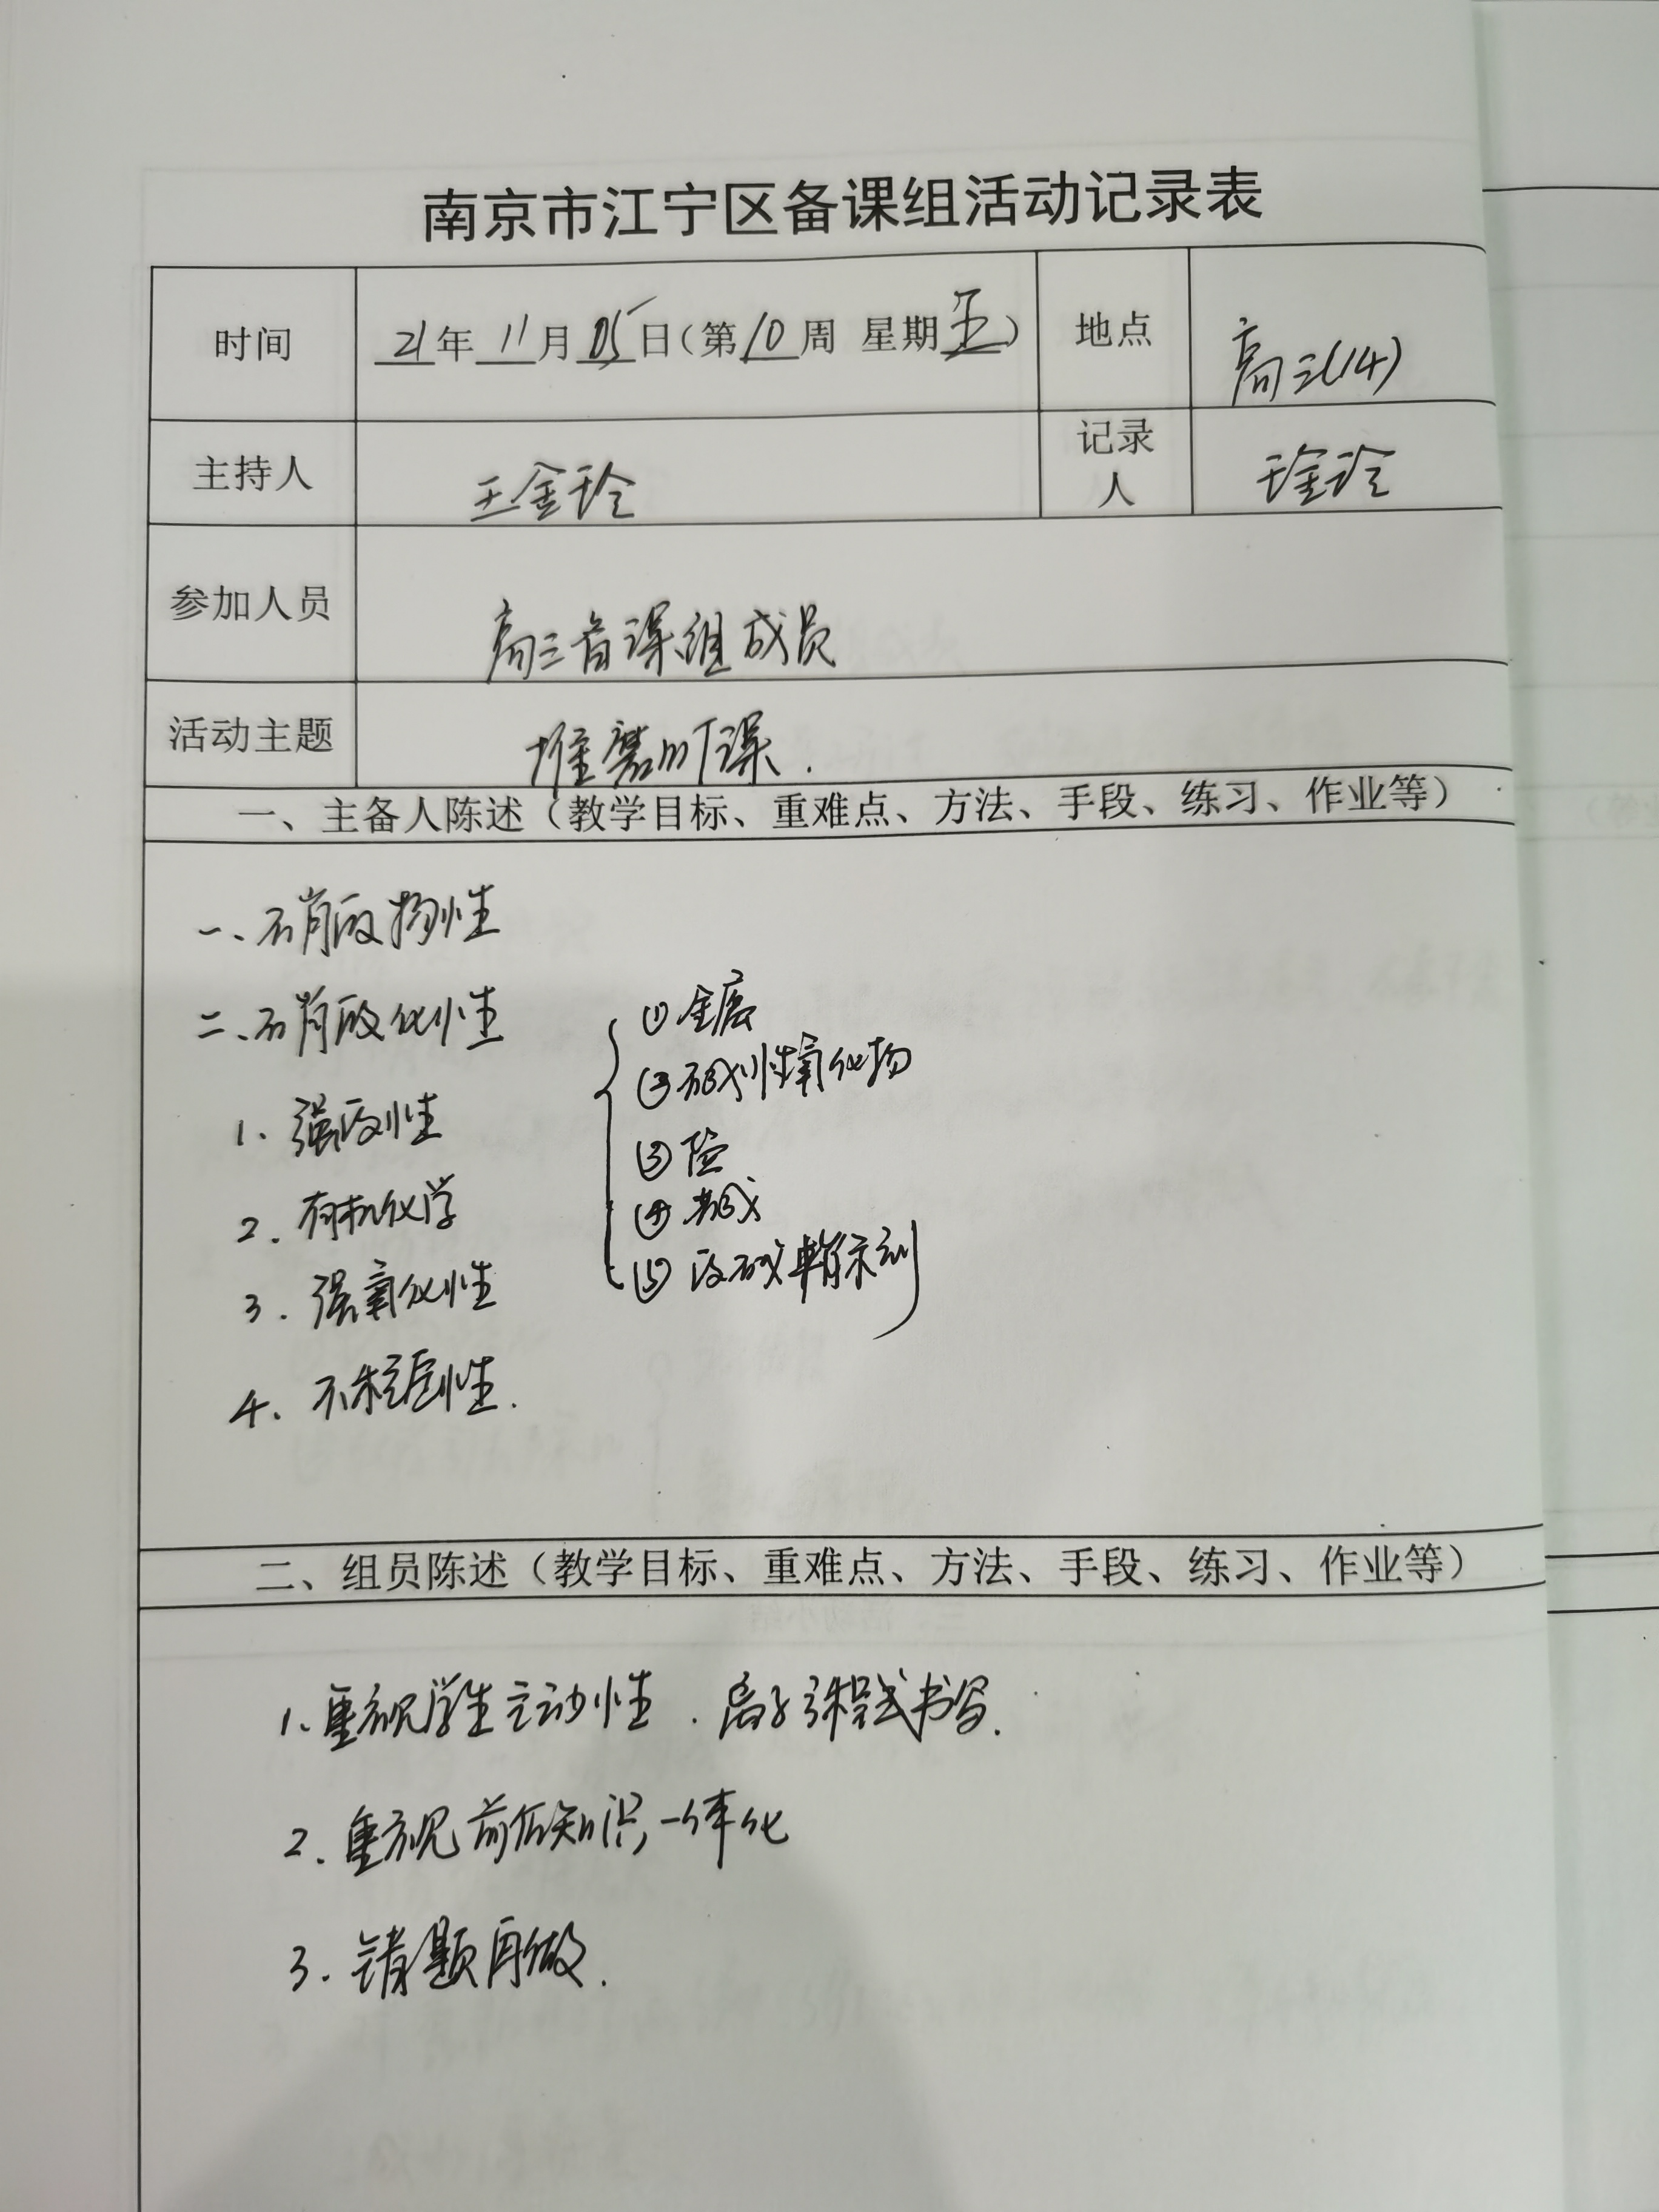 南京市江宁区备课组活动记录表
时间 21年11月05日(第10周 星期五) 地点 高三(14)
主持人 王金玲 记录人 王金玲
参加人员 高三备课组成员
活动主题 课.
一、主备人陈述(教学目标、重难点、方法、手段、练习、作业等)
一、硝酸物性
二、硝酸化性
1. 强酸性
2. 有机化学
3. 强氧化性
4. 不稳定性.
① 金属
② 碱性氧化物
③ 盐
④ 碱
⑤ 酸碱指示剂
二、组员陈述(教学目标、重难点、方法、手段、练习、作业等)
1. 重视学生主动性. 离子方程式书写.
2. 重视前后知识一体化
3. 错题再做.